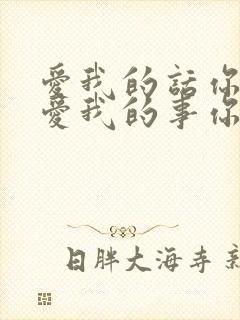 愛我的話你
愛我的事你
日胖大海寺新